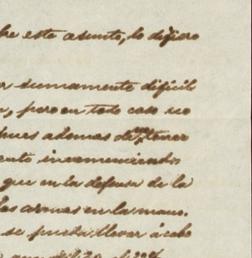 este asunto, lo difiero
sumamente dificil
, pero en todo caso no
pues ademas de tener
inconveniente
que en la defensa de la
las armas en la mano.
se pueda llevar á cabo